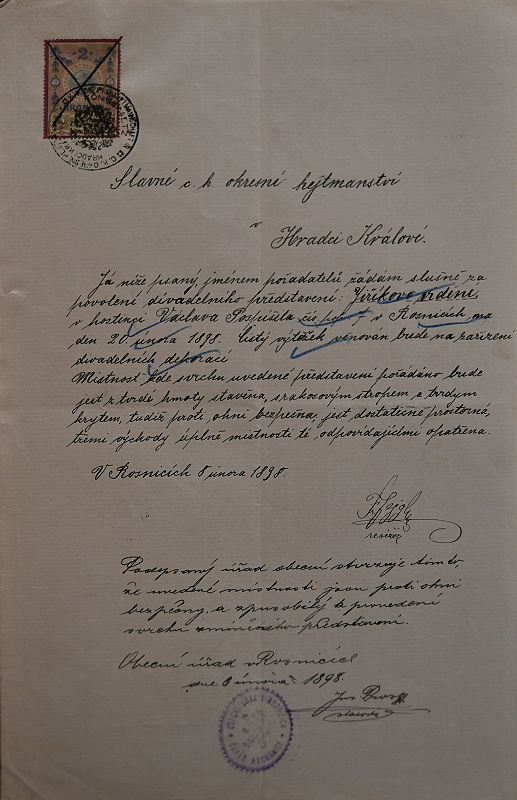 2
Slavné c. k. okresné hejtmanství
v
Hradci Králové.
Já níže psaný, jménem pořadatelů žádám slušně za
povolení divadelního představení: Jiříkovo vidění,
v hostinci Václava Pospíšila čís. pop. 7 v Rosnicích na
den 20. února 1898. Čistý výtěžek věnován bude na zařízení
divadelních dekorací
Místnost kde svrchu uvedené představení pořádáno bude
jest z tvrdé hmoty stavěna, s rákosovým stropem a tvrdým
krytem, tudíž proti ohni bezpečna, jest dostatečně prostorná,
třemi východy úplně místnosti té odpovídajícími opatřena.
V Rosnicích 8 února 1898.
režisér
Podepsaný úřad obecní stvrzuje tímto,
že uvedené místnosti jsou proti ohni
bezpečny, a způsobilý k provedení
svrchu zmíněného představení.
Obecní úřad v Rosnicích
dne 8 února 1898.
Jos
starosta
OBECNÍ ÚŘAD V ROSNICÍCH